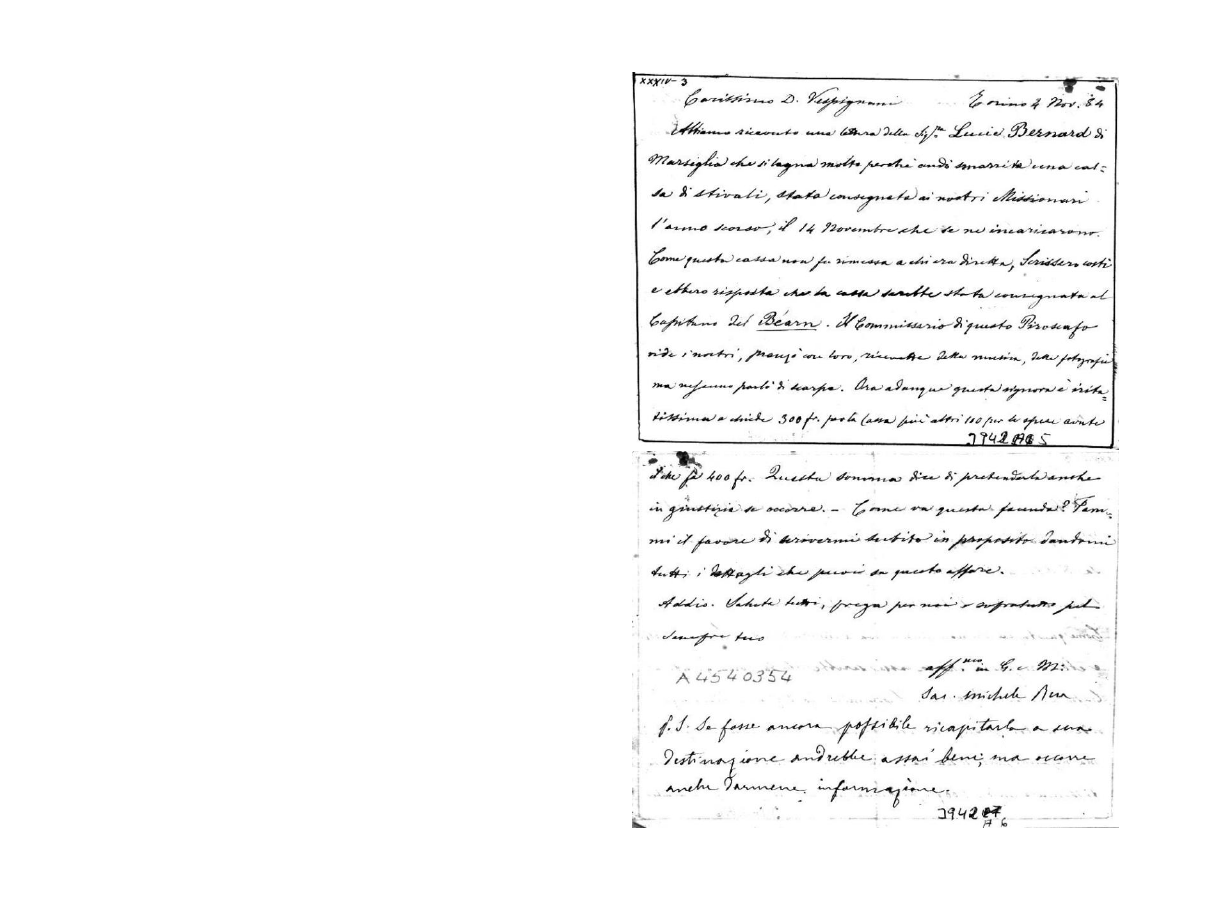 XXXIV - 3
Carissimo D. Vespignani Torino 2 Nov. 84
Abbiamo ricevuto una lettera della Sig.ra Lucie Bernard di
Marsiglia che si lagna molto perchè andò smarrita una cas=
sa di stivali, stata consegnata ai nostri Missionari
l'anno scorso, il 14 Novembre che se ne incaricarono.
Come questa cassa non fu rimessa a chi era diretta, Scrissero costì
e ebbero risposta che la cassa sarebbe stata consegnata al
Capitano del Béarn. Il Commissario di questo Piroscafo
vide i nostri, mangiò con loro, ricevette della musica, delle fotografie
ma nessuno parlò di scarpe. Ora adunque questa signora è irita=
tissima e chiede 300 fr. per la Cassa più altri 100 per le spese avute
3942 A 5
il che fa 400 fr. Questa somma dice di pretenderla anche
in giustizia se occorre. - Come va questa facenda? Fam=
mi il favore di scrivermi subito in proposito dandomi
tutti i dettagli che puoi su questo affare.
Addio. Saluta tutti, prega per noi e sopratutto pel
sempre tuo
aff.mo in G. e M.
A4540354
Sac. Michele Rua
P. S. Se fosse ancora possibile ricapitarla a sua
destinazione andrebbe assai bene; ma occorre
anche darmene informazione.
3942
A 6